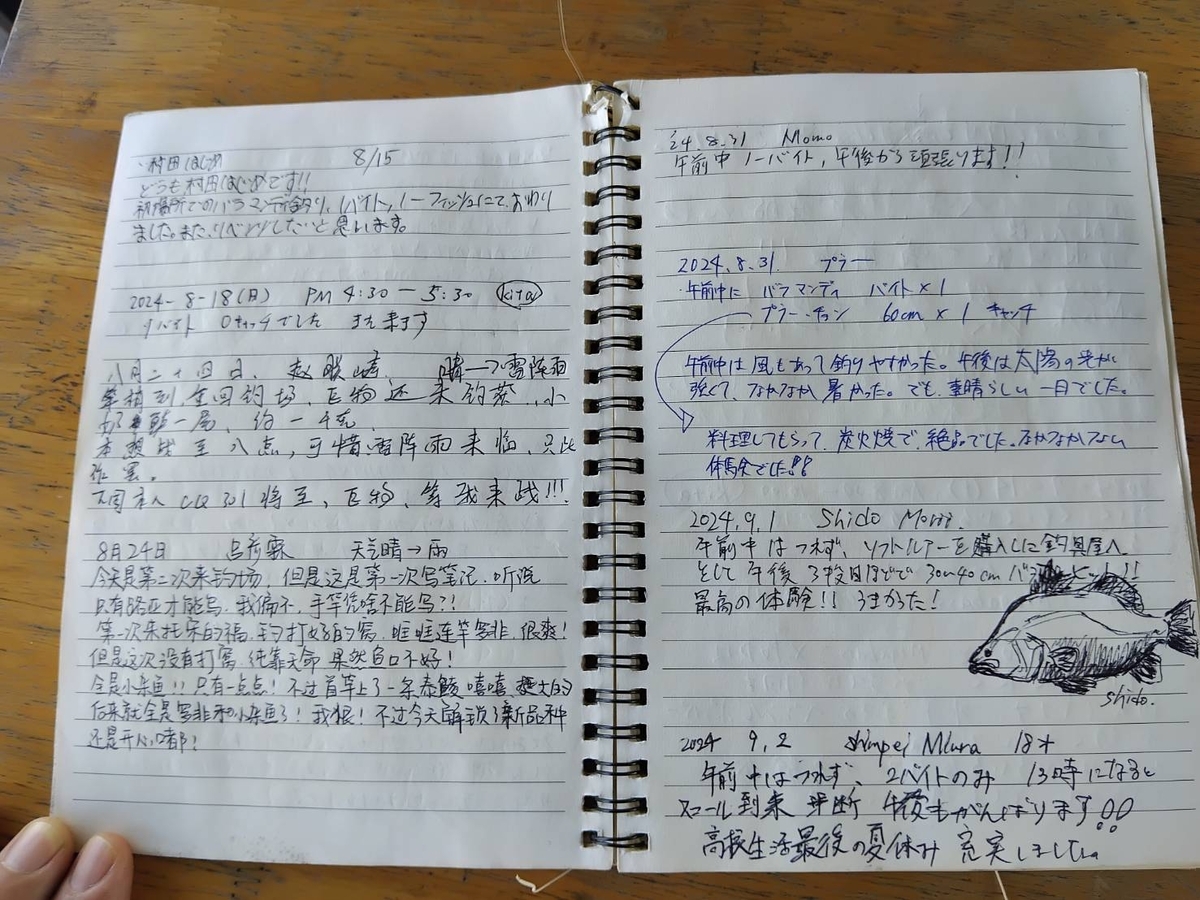 村田はじめ 8/15
どうも村田はじめです!!
初場所でのバラマンディ釣り、1バイト、1フィッシュにておわり
ました。また、リベンジしたいと思います。
2024-8-18(日) PM 4:30 — 5:30 kita
1バイト 0キャッチでした また来ます
八月二十四日、赵 晴→雷阵雨
第 到 钓场,巨物还未钓获,小
一尾,约一千克
本想战至八点,可惜雷阵雨来临,只此
作罢。
下周本人CQ301将至,巨物,等我来战!!!
8月24日 吕彦霖 天气晴→雨
今天是第二次来钓场,但是这是第一次写笔记,听说
只有路亚才能写,我偏不,手竿凭啥不能写?!
第一次来托宋的福,钓打好的窝,哐哐连竿罗非,很爽!
但是这次没有打窝,纯靠天命 果然鱼口不好!
全是小杂鱼!! 只有一点点! 不过首竿上了一条泰鲮 嘻嘻 挺大的
后来就全是罗非和小杂鱼了! 我恨! 不过今天解锁了新品种
还是开心嘟!
'24.8.31 Momo
午前中ノーバイト,午後から頑張ります!!
2024.8.31 プラー
午前中に バラマンディ バイト×1
プラー・チョン 60cm×1 キャッチ
午前中は風もあって釣りやすかった。午後は太陽の光が
強くて、なかなか暑かった。でも、素晴らしい一日でした。
料理してもらって、炭火焼で、絶品でした。なかなかない
体験でした!!
2024.9.1 Shido Morri.
午前中はつれず、ソフトルアーを購入しに釣具屋へ
そして午後3投目ほどで30〜40cm バラ ヒット!!
最高の体験!! うまかった!
shido.
2024 9.2 Shimpei Miura 18才
午前中はつれず、2バイトのみ 13時になると
スコール到来 中断 午後もがんばります!!
高校生活最後の夏休み 充実しました。